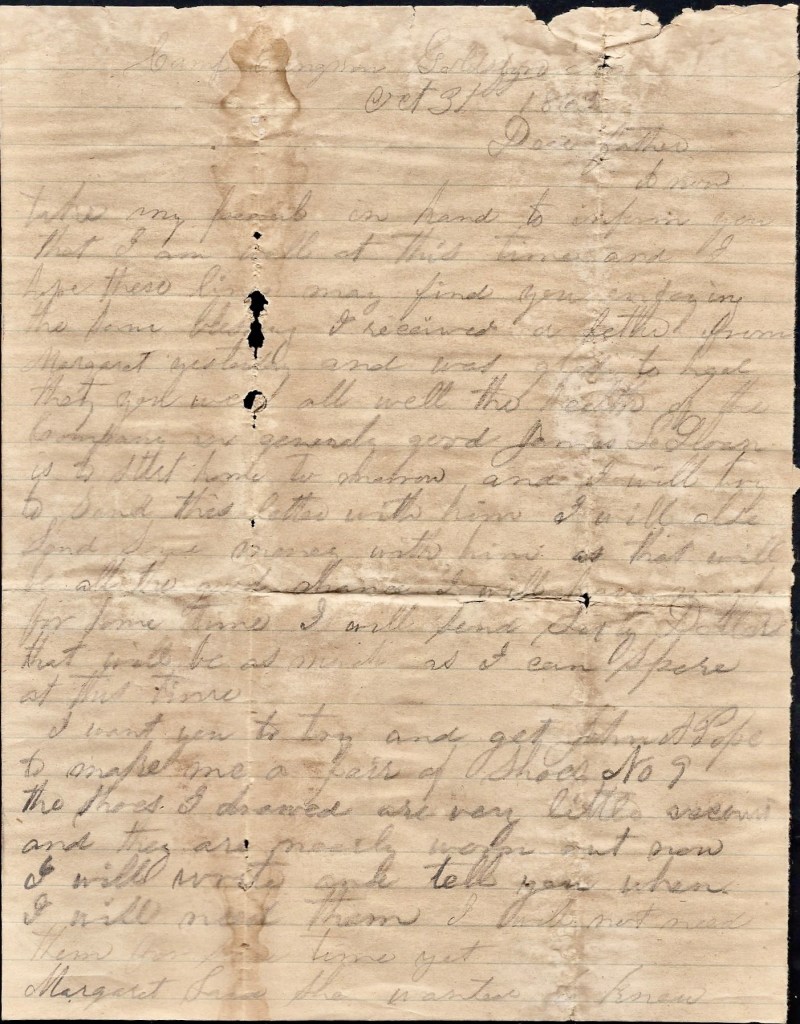 Camp
Oct 31 1863
Dear father
I now
take my pencil in hand to inform you
that I am well at this time and I
hope these lines may find you enjoying
the same blessing I received a letter from
Margaret yesterday and was glad to hear
that you were all well the health of the
Company is generaly good James
is to start home to morrow and I will try
to send this letter with him I will also
send some money with him as that will
be the good chance I will have
for some time I will send Dollars
that will be as much as I can spare
at this time
I want you to try and get John A Pope
to make me a parr of shoes No 9
the shoes I drawed are very little
and they are nearly worn out now
I will write and tell you when
I will need them I will not need
them for time yet
Margaret said she wanted to know